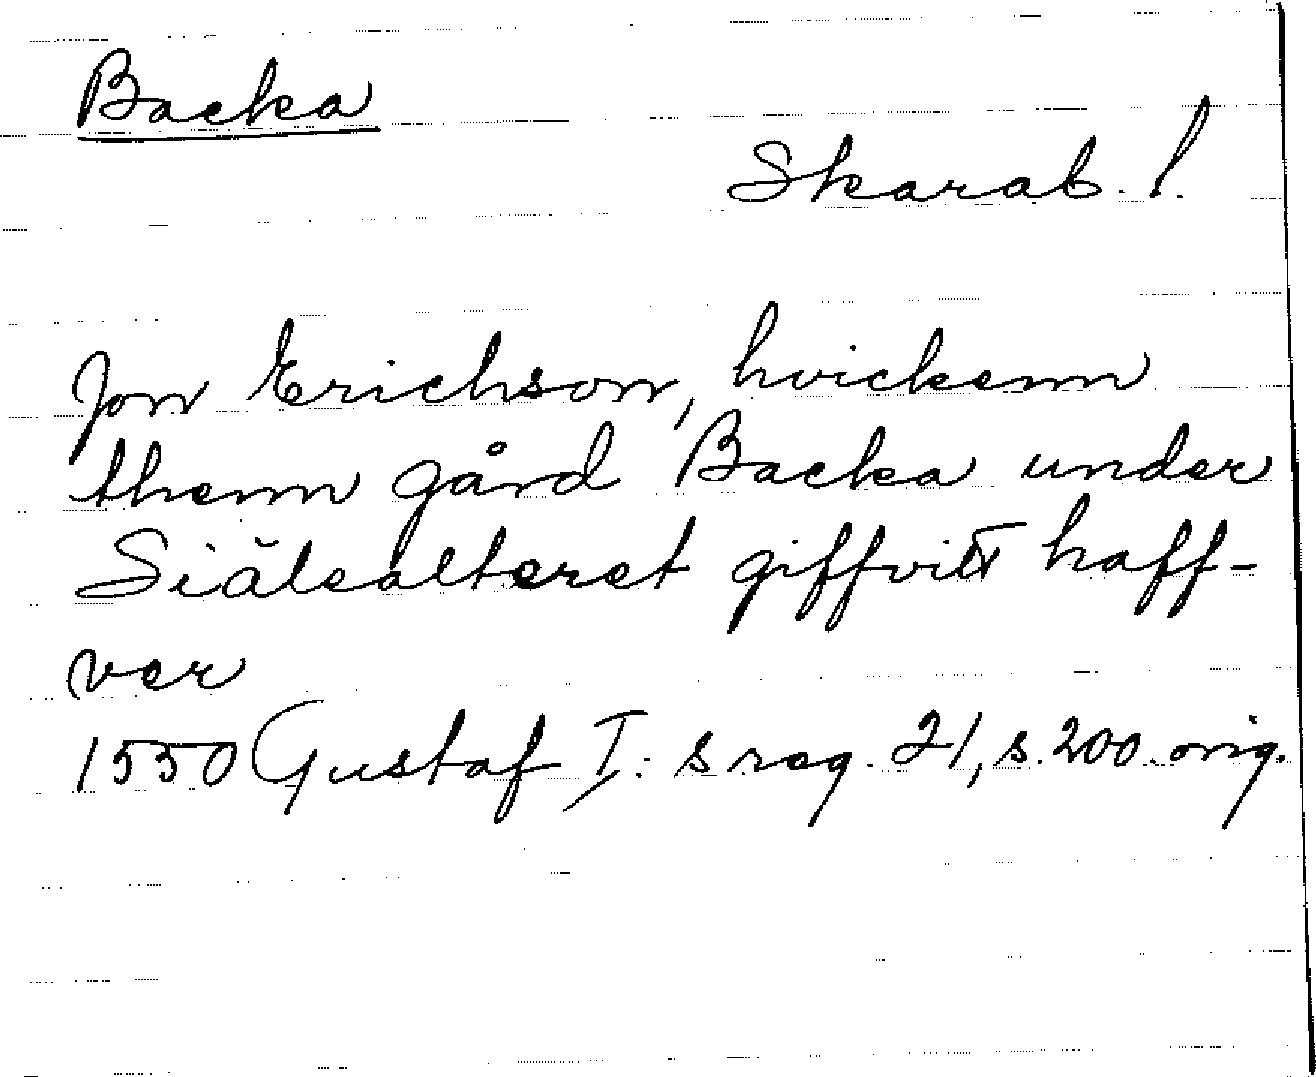 Backa
Skarab. l.
Jon Erichson, hvickenn
thenn gård Backa under
Siälealteret giffvitt haff-
ver
1550 Gustaf I:s reg. 21, s. 200 orig.